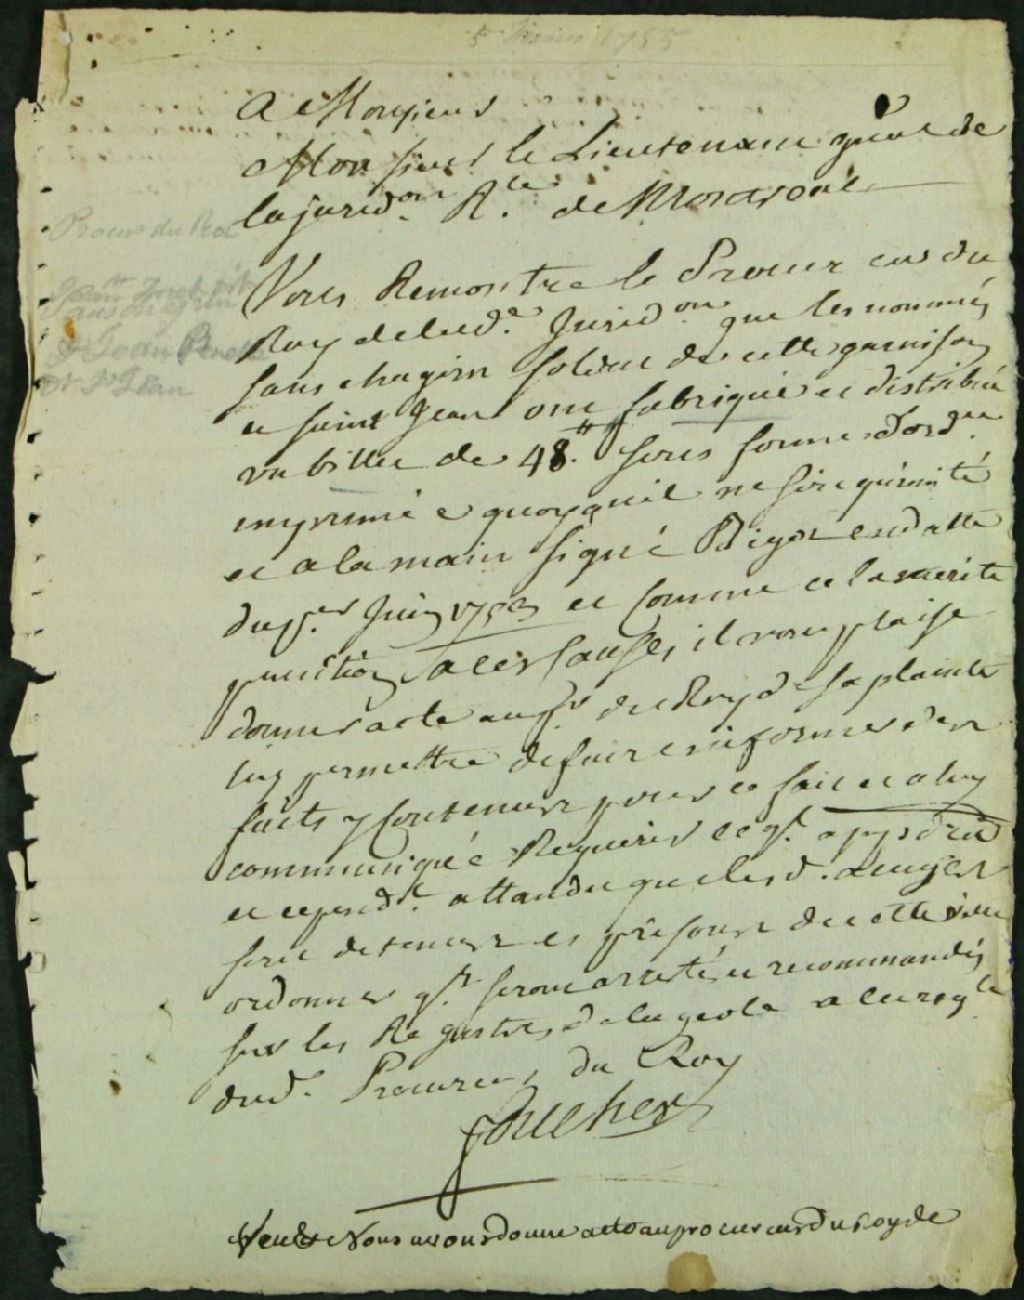 5 février 1755
A Monsieur
Monsieur le Lieutenant gñal de
la jurid.on R.le de Montreal
Procur du Roi
Vous Remontre le Procur eur du
Roy de lad.e Jurid.on que les nommés
Sans chagrin
sans chagrin soldat de cette garnison
& Jean
et saint Jean ont fabriqué et distribué
dt St Jean
un billet de 48.tt sous forme d'ord.ce
imprimé e quoyquil ne soit qu'imité
et a la main signé Bigot en datte
du p.er Juin 1753 et comme cela merite
punition A ces causes, il vous plaise
donner acte au p.r du Roy de sa plainte
luy permettre de faire informer des
faits y contenus pour ce fait et a luy
communiqué Requerir ce q.l app.dra
et cepend.t attandu que lesd. 
sont detenus es prisons de cette ville
ordonner q.ls seront arretés et recommandés
sur les Registres de la geole a la req.te
dud. Procureur du Roy
foucher
Veu & Nous avons donné acte au procureur du Roy de